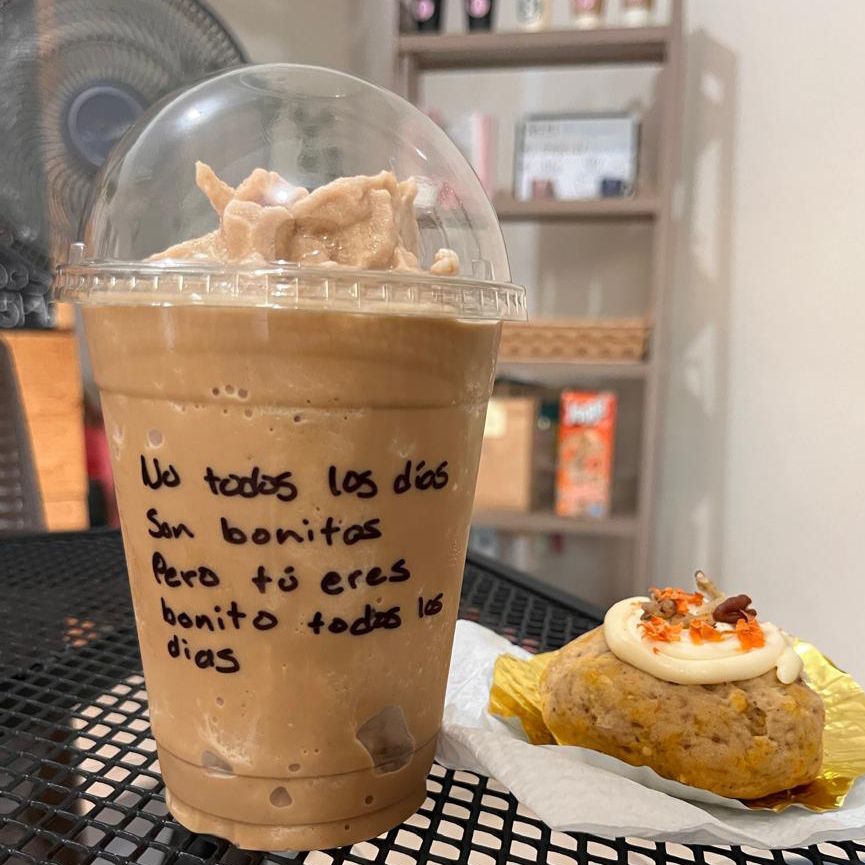 No todos los días
Son bonitos
Pero tú eres
bonito todos los
dias